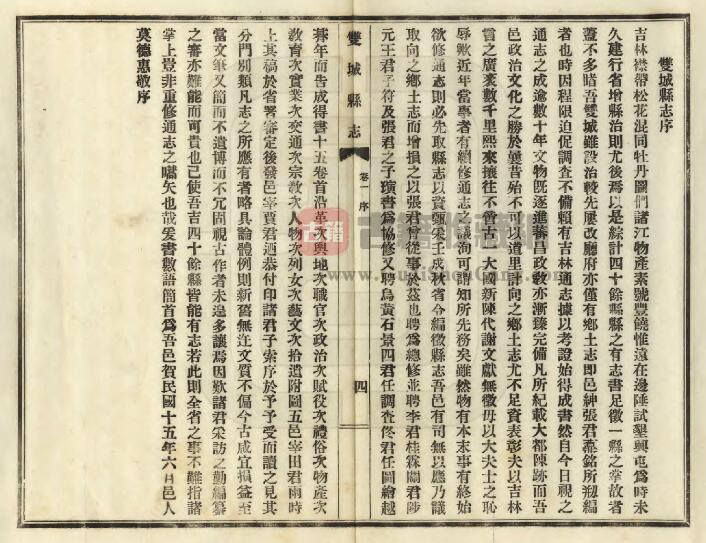 雙城縣志序
吉林襟帶松花混同牡丹圖們諸江物產素號豐饒惟遠在邊陲試墾興屯為時未
久建行省增縣治則尤後焉以是綜計四十餘縣縣之有志書足徵一縣之掌故者
蓋不多睹吾雙城雖設治較先屢改廳府亦僅有鄉土志即邑紳張君熹銘所刱編
者也時因程限迫促調查不備賴有吉林通志據以考證始得成書然自今日視之
通志之成逾數十年文物旣逐進蕃昌政敎亦漸臻完備凡所紀載大都陳跡而吾
邑政治文化之勝於曩昔殆不可以道里計向之鄉土志尤不足資表彰夫以吉林
言之廣袤數千里熙來攘往不啻古一大國新陳代謝文獻無徵毋以大夫士之恥
辱歟近年當事者有續修通志之議洵可謂知所先務矣雖然物有本末事有終始
欲修通志則必先取縣志以資甄采壬戌秋省令編徵縣志吾邑有司無以應乃議
取向之鄉土志而增損之以張君曾從事於茲也聘為總修並聘李君桂霖關君陟
元王君子符及張君之子瓚書為協修又聘烏黃石景四君任調查佟君任圖繪越
雙城縣志
卷一 序
四
朞年而告成得書十五卷首沿革次輿地次職官次政治次賦役次禮俗次物產次
敎育次實業次交通次宗敎次人物次列女次藝文次拾遺附圖五邑宰田君雨時
上其稿於省署審定後發邑宰賈君迺恭付印諸君子索序於予予受而讀之見其
分門別類凡志之所應有者略具論體例則新舊無迕文質不偏今古咸宜損益至
當文筆又簡而不遺博而不冗固視古作者未遑多讓焉因歎諸君采訪之勤編纂
之審亦難能而可貴也已使吾吉四十餘縣皆能有志若此則全省之事不難指諸
掌上豈非重修通志之嚆矢也哉爰書數語簡首為吾邑賀民國十五年六月邑人
莫德惠敬序
古籍